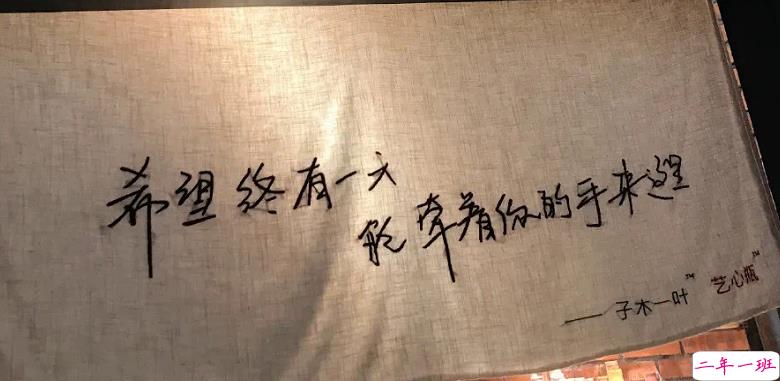 希望终有一天
能牵着你的手来这里
——子木一叶™ 艺心瓶™
二年一班